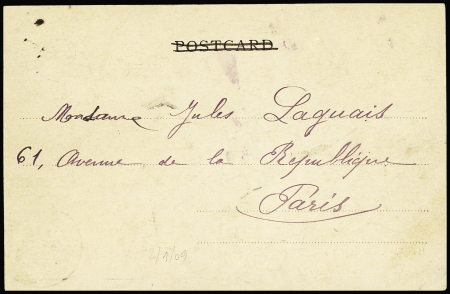 POSTCARD
Madame Jules Laguais
61, Avenue de la République
Paris
2/1/09